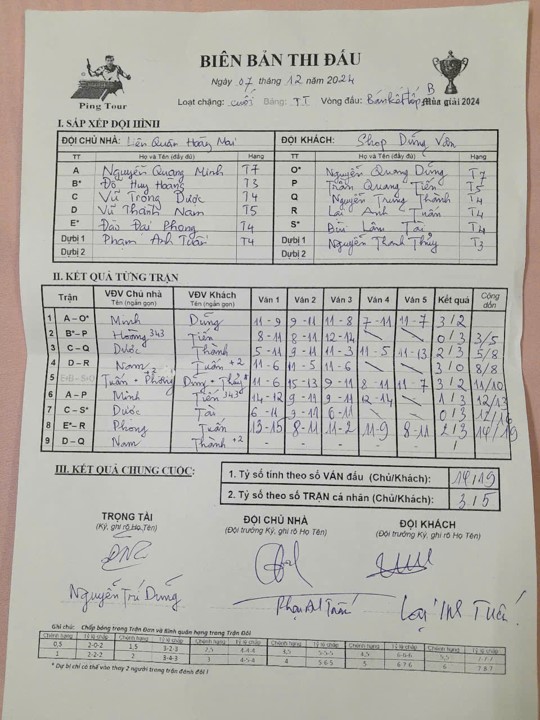 BIÊN BẢN THI ĐẤU
Ngày 07 tháng 12 năm 2024
Ping Tour
Loạt chặng: cuối Bảng: TT Vòng đấu: Bán kết tốp B Mùa giải 2024
I. SẮP XẾP ĐỘI HÌNH
ĐỘI CHỦ NHÀ: Liên Quân Hoàng Mai ĐỘI KHÁCH: Shop Dũng Vân
TT Họ và Tên (đầy đủ) Hạng TT Họ và Tên (đầy đủ) Hạng
A Nguyễn Quang Minh T7 O* Nguyễn Quang Dũng T7
B* Đỗ Huy Hoàng T3 P Trần Quang Tiến T5
C Vũ Trọng Dược T4 Q Nguyễn Trung Thành T4
D Vũ Thành Nam T5 R Lại Anh Tuấn T4
E* Đào Đại Phong T4 S* Bùi Lâm Tài T4
Dự bị 1 Phạm Anh Tuấn T4 Dự bị 1 Nguyễn Thanh Thủy T3
Dự bị 2 Dự bị 2
II. KẾT QUẢ TỪNG TRẬN
Trận VĐV Chủ nhà Tên (ngắn gọn) VĐV Khách Tên (ngắn gọn) Ván 1 Ván 2 Ván 3 Ván 4 Ván 5 Kết quả Cộng dồn
1 A – O* Minh Dũng 11 - 9 9 - 11 11 - 8 7 - 11 11 - 7 3 / 2
2 B* – P Hoàng 343 Tiến 8 - 11 8 - 11 12 - 14 0 / 3 3/5
3 C – Q Dược Thành 5 - 11 9 - 11 11 - 3 11 - 5 11 - 13 2 / 3 5/8
4 D – R Nam Tuấn +2 11 - 6 11 - 5 11 - 6 3 / 0 8/8
5 Tuấn + Phong Dũng + Thủy 11 - 6 15 - 13 9 - 11 8 - 11 11 - 7 3 / 2 11/10
6 A – P Minh Tiến 343 14 - 12 9 - 11 9 - 11 12 - 14 1 / 3 12/13
7 C – S* Dược Tài 6 - 11 9 - 11 6 - 11 0 / 3 12/16
8 E* – R Phong Tuấn 13 - 15 8 - 11 11 - 2 11 - 9 8 - 11 2 / 3 14/19
9 D – Q Nam Thành +2 - - - - - /
III. KẾT QUẢ CHUNG CUỘC:
1. Tỷ số tính theo số VÁN đấu (Chủ/Khách): 14/19
2. Tỷ số theo số TRẬN cá nhân (Chủ/Khách): 3/5
TRỌNG TÀI ĐỘI CHỦ NHÀ ĐỘI KHÁCH
(Ký, ghi rõ Họ Tên) (Đội trưởng Ký, ghi rõ Họ Tên) (Đội trưởng Ký, ghi rõ Họ Tên)
Nguyễn Trí Dũng Phạm A Tuấn Lại Anh Tuấn
Ghi chú: Chấp bóng trong Trận Đơn và Bình quân hạng trong Trận Đôi
Chênh hạng Tỷ lệ chấp Chênh hạng Tỷ lệ chấp Chênh hạng Tỷ lệ chấp Chênh hạng Tỷ lệ chấp Chênh hạng Tỷ lệ chấp Chênh hạng Tỷ lệ chấp
0,5 2-0-2 1,5 3-2-3 2,5 4-4-4 3,5 5-5-5 4,5 6-6-6 5,5 7-7-7
1 2-2-2 2 3-4-3 3 4-5-4 4 5-6-5 5 6-7-6 6 7-8-7
* Dự bị chỉ có thể vào thay 2 người trong trận đánh đôi !